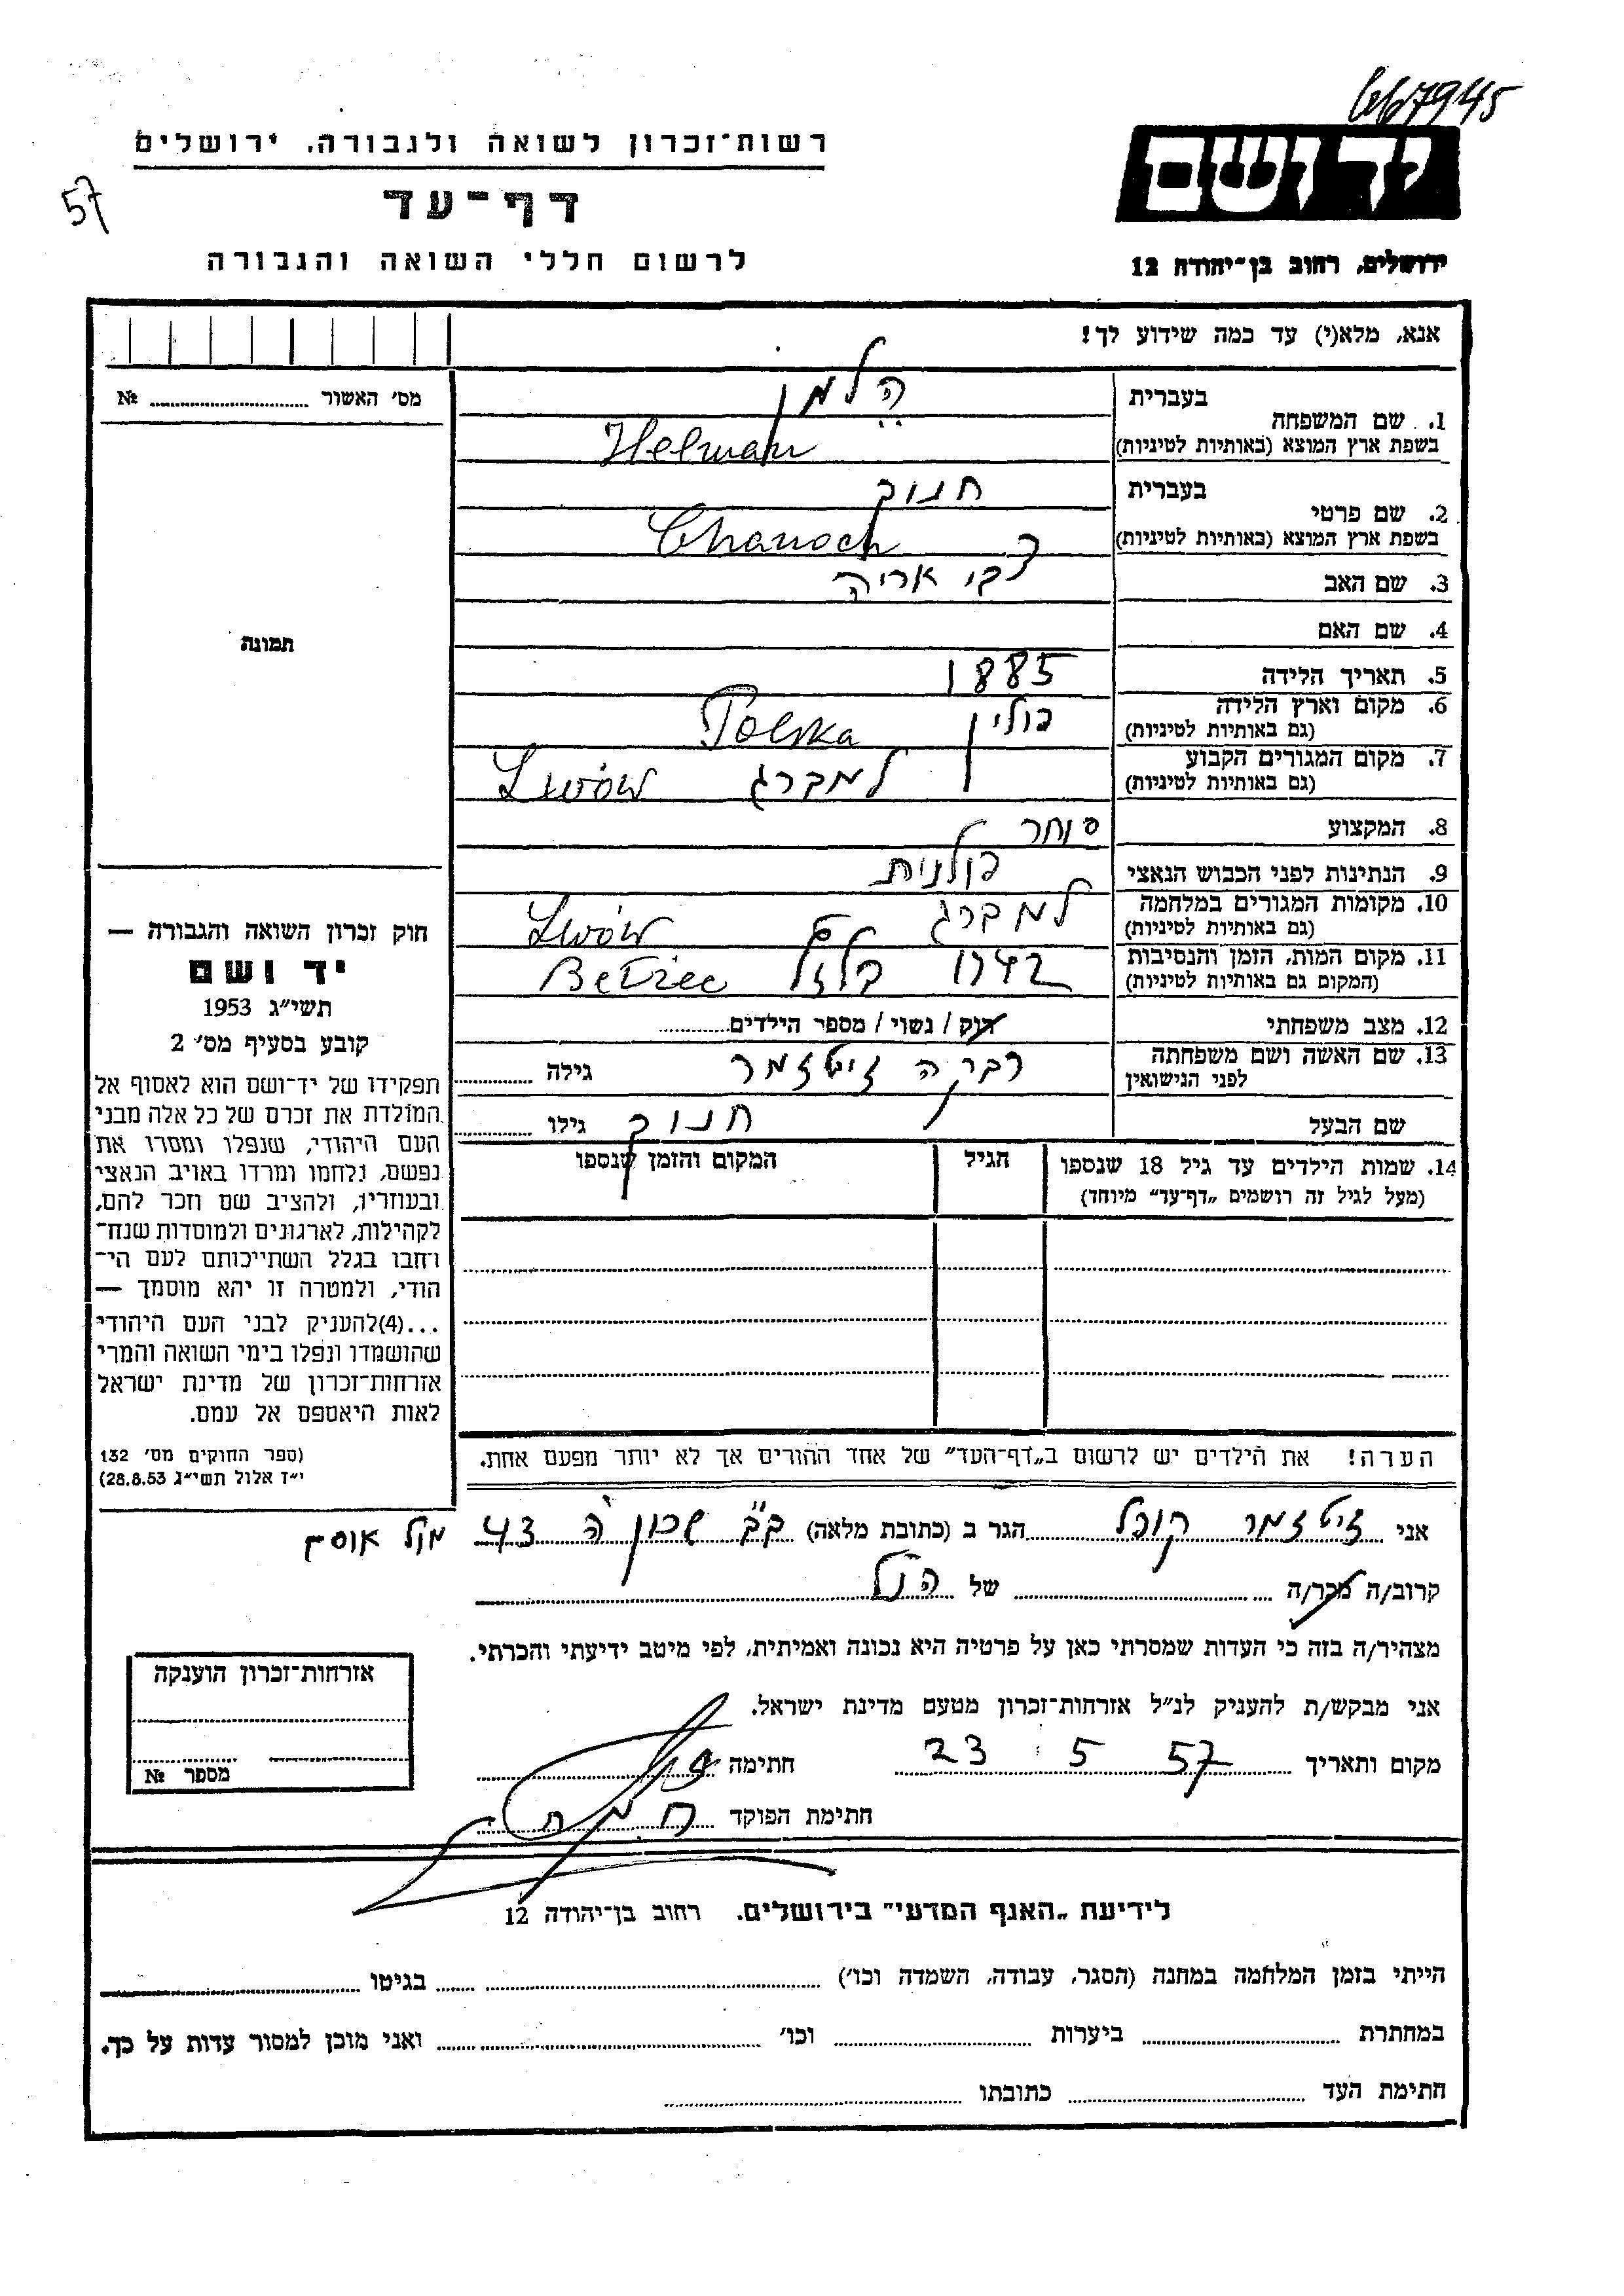 667945
רשות־זכרון לשואה ולגבורה, ירושלים
יד ושם
57
דף־עד
לרשום חללי השואה והגבורה
ירושלים, רחוב בן־יהודה 12
אנא, מלא(י) עד כמה שידוע לך!
מס׳ האשור № 
בעברית הלמן
1. שם המשפחה
בשפת ארץ המוצא (באותיות לטיניות) Helman
בעברית חנוך
2. שם פרטי
בשפת ארץ המוצא (באותיות לטיניות) Chanoch
3. שם האב צבי אריה
4. שם האם
תמונה
5. תאריך הלידה 1885
6. מקום וארץ הלידה פולין Polska
(גם באותיות לטיניות)
7. מקום המגורים הקבוע למברג Lwów
(גם באותיות לטיניות)
8. המקצוע סוחר
9. הנתינות לפני הכבוש הנאצי פולנית
10. מקומות המגורים במלחמה למברג Lwów
(גם באותיות לטיניות)
11. מקום המות, הזמן והנסיבות 1942 בלזץ Bełżec
(המקום גם באותיות לטיניות)
12. מצב משפחתי רוק / נשוי / מספר הילדים
13. שם האשה ושם משפחתה רבקה זילזמר גילה
לפני הנישואין
שם הבעל חנוך גילו
14. שמות הילדים עד גיל 18 שנספו הגיל המקום והזמן שנספו
(מעל לגיל זה רושמים „דף־עד״ מיוחד)
חוק זכרון השואה והגבורה —
יד ושם
תשי״ג 1953
קובע בסעיף מס׳ 2
תפקידו של יד־ושם הוא לאסוף אל
המולדת את זכרם של כל אלה מבני
העם היהודי, שנפלו ומסרו את
נפשם, נלחמו ומרדו באויב הנאצי
ובעוזריו, ולהציב שם וזכר להם,
לקהילות, לארגונים ולמוסדות שנח־
רחבו בגלל השתייכותם לעם הי־
הודי, ולמטרה זו יהא מוסמך —
...(4)להעניק לבני העם היהודי
שהושמדו ונפלו בימי השואה והמרי
אזרחות־זכרון של מדינת ישראל
לאות היאספם אל עמם.
(ספר החוקים מס׳ 132
י״ז אלול תשי״ג 28.8.53)
הערה! את הילדים יש לרשום ב„דף־העד״ של אחד ההורים אך לא יותר מפעם אחת.
אני זילזמר קופל הגר ב (כתובת מלאה) ב״ב שכון ה׳ 43
קרוב/ה מכר/ה של הנ״ל
מצהיר/ה בזה כי העדות שמסרתי כאן על פרטיה היא נכונה ואמיתית, לפי מיטב ידיעתי והכרתי.
אני מבקש/ת להעניק לנ״ל אזרחות־זכרון מטעם מדינת ישראל.
אזרחות־זכרון הוענקה
מספר №
מקום ותאריך 23 5 57 חתימה
חתימת הפוקד
לידיעת „האגף המדעי״ בירושלים. רחוב בן־יהודה 12
הייתי בזמן המלחמה במחנה (הסגר, עבודה, השמדה וכו׳) בגיטו
במחתרת ביערות וכו׳ ואני מוכן למסור עדות על כך.
חתימת העד כתובתו